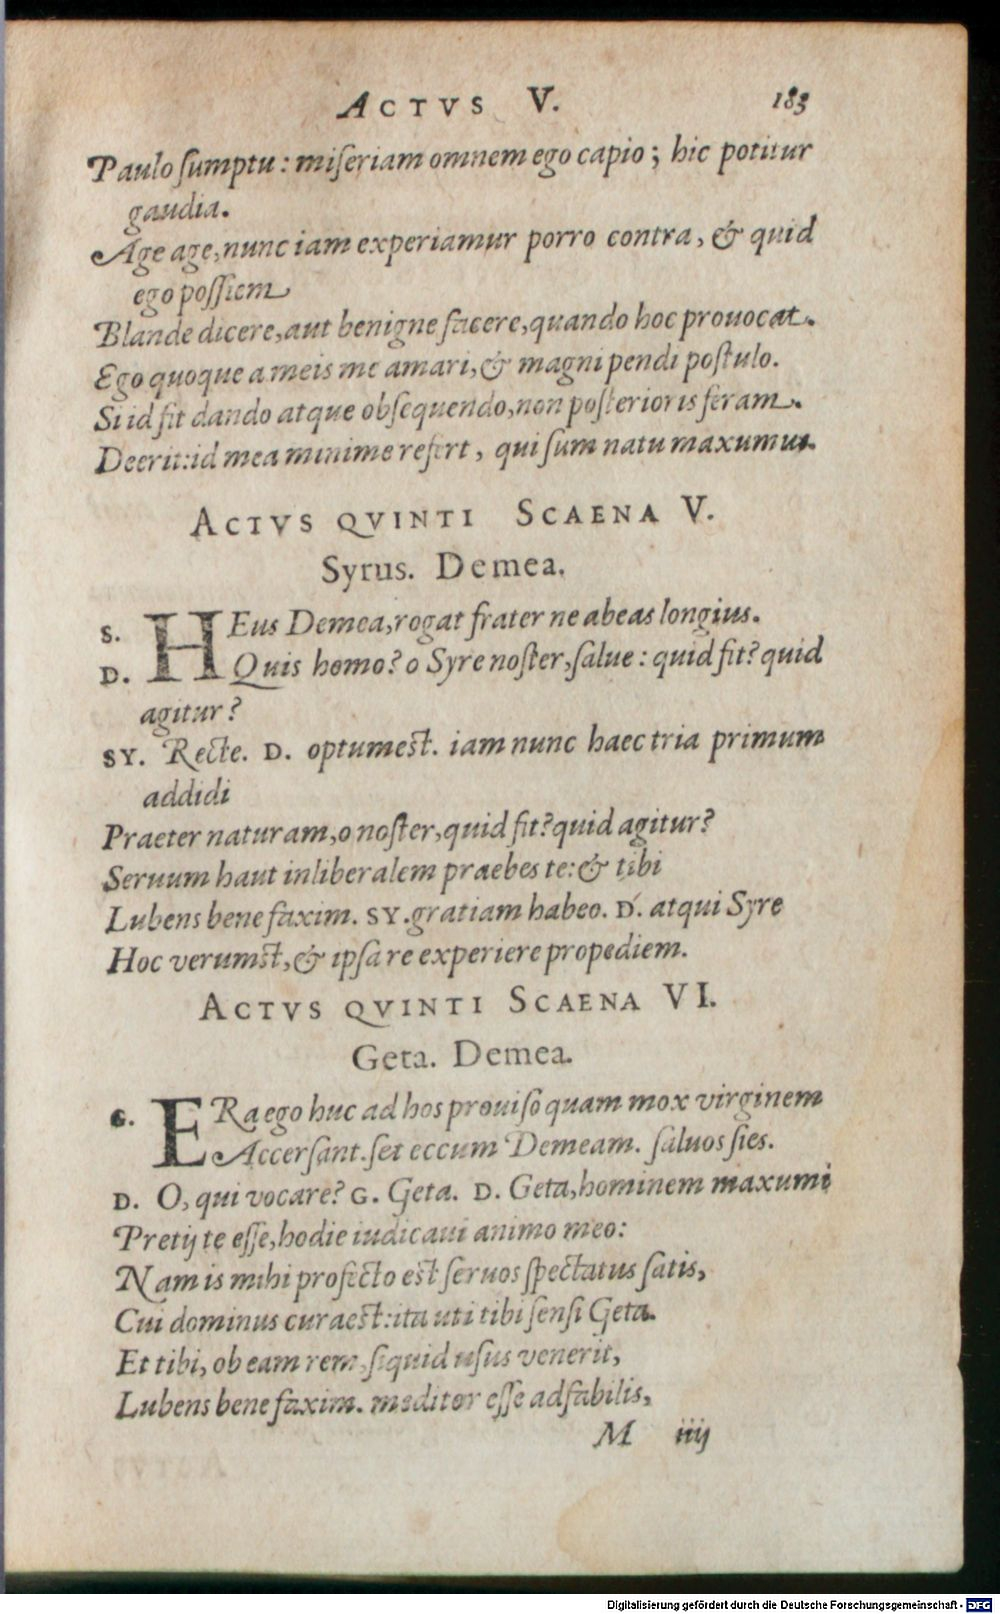 ACTVS V. 183
Paulo sumptu: miseriam omnem ego capio; hic potitur
gaudia.
Age age, nunc iam experiamur porro contra, & quid
ego possiem
Blande dicere, aut benigne facere, quando hoc prouocat.
Ego quoque a meis me amari, & magni pendi postulo.
Si id fit dando atque obsequendo, non posterioris feram.
Deerit: id mea minime refert, qui sum natu maxumus.
ACTVS QVINTI SCAENA V.
Syrus. Demea.
S. HEus Demea, rogat frater ne abeas longius.
D. Quis homo? o Syre noster, salue: quid fit? quid
agitur?
SY. Recte. D. optumest. iam nunc haec tria primum
addidi
Praeter naturam, o noster, quid fit? quid agitur?
Seruum haut inliberalem praebes te: & tibi
Lubens bene faxim. SY. gratiam habeo. D. atqui Syre
Hoc verumst, & ipsa re experiere propediem.
ACTVS QVINTI SCAENA VI.
Geta. Demea.
G. ERa ego huc ad hos prouiso quam mox virginem
Accersant. set eccum Demeam. saluos sies.
D. O, qui vocare? G. Geta. D. Geta, hominem maxumi
Pretij te esse, hodie iudicaui animo meo:
Nam is mihi profecto est seruos spectatus satis,
Cui dominus curaest: ita uti tibi sensi Geta.
Et tibi, ob eam rem, siquid usus venerit,
Lubens bene faxim. meditor esse adfabilis,
M iiij
Digitalisierung gefördert durch die Deutsche Forschungsgemeinschaft - DFG